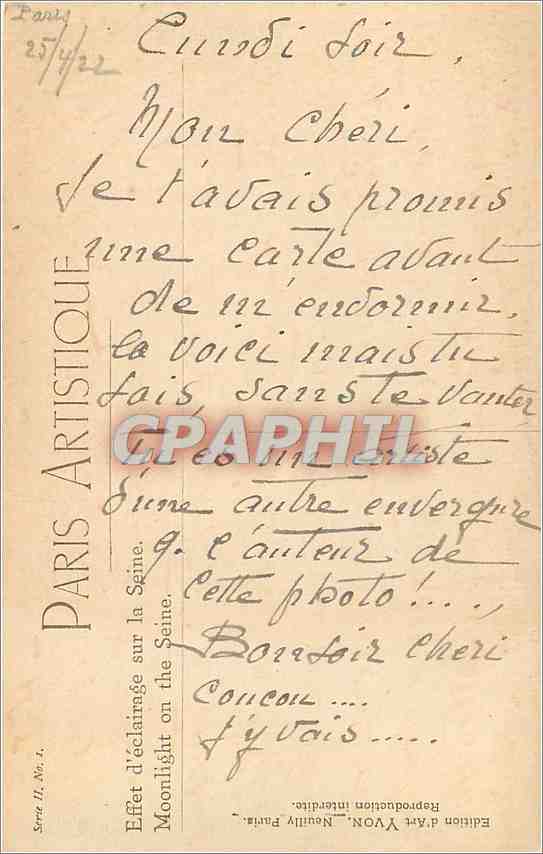 Paris
25/4/22
Lundi soir.
Mon chéri,
Je t'avais promis
une carte avant
de m'endormir.
la voici mais tu
sais, sans te vanter
Tu es un artiste
d'une autre envergure
q. l'auteur de
cette photo!....
Bonsoir chéri
coucou....
J'y vais.....
PARIS ARTISTIQUE
Effet d'éclairage sur la Seine.
Moonlight on the Seine.
Serie II, No. 1.
Edition d'Art YVON, Neuilly Paris.
Reproduction interdite.
CPAPHIL